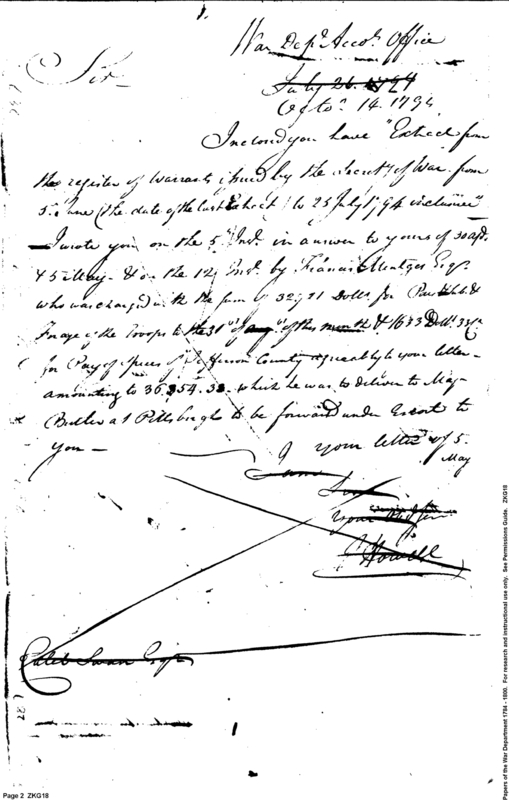 War Dep.t Acco.ts Office
Sir
July 26. 1794
Octo.r 14. 1794
Inclosed you have Extract from
the register of Warrants issued by the Secret.y of War from
5. June (the date of the last Extract) to 25 July 1794 inclusive
I wrote you on the 5. Ins.t in answer to yours of 30 ap.
& 5 May & on the 12 Ins.t by Francis Mentges Esq.r
who was charged with the sum of Dolls for
Forage of the Troops to the 31.st of of this month & 1633 Doll.s 33
for Pay of Spies of Jefferson County agreeably to your letter
amounting to 36,254.33 which he was to deliver to Maj.
Butler at Pittsburgh to be forward under Escort to
you —
your letter of 5.
May
I am
Sir
Your
Howell
Caleb Swan Esq.r
Page 2 ZKG18
Papers of the War Department 1784 - 1800. For research and instructional use only. See Permissions Guide. ZKG18